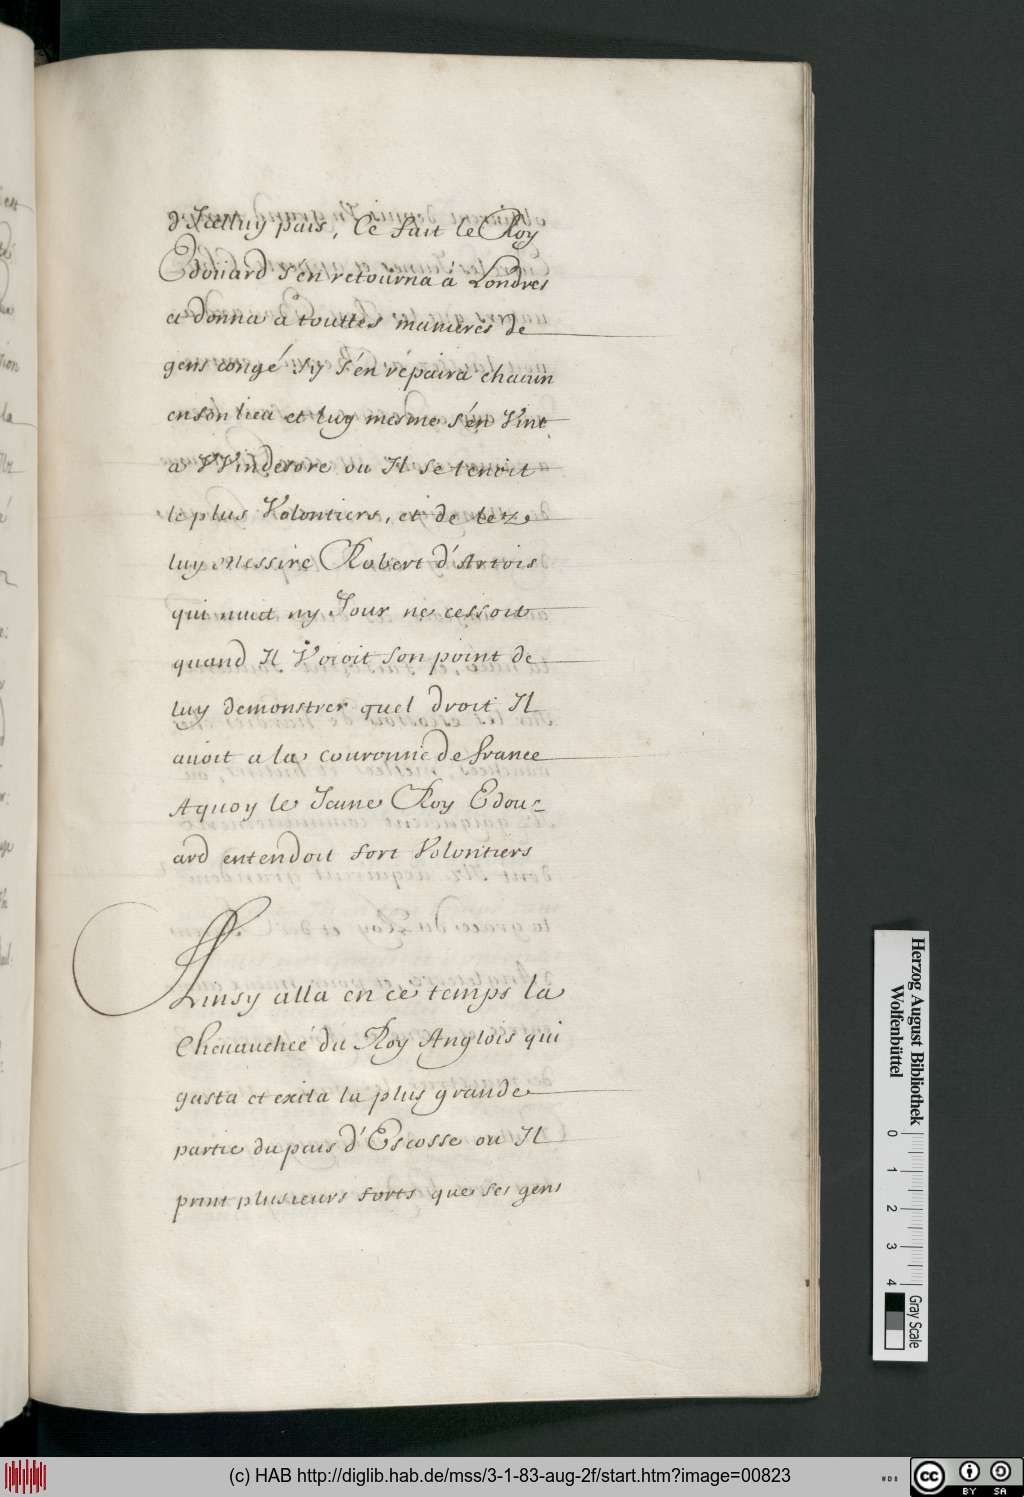 d'Icelluy païs, Ce fait le Roy
Edoüard s'en retourna à Londres
et donna a touttes manieres de
gens congé sy s'én répaira chacun
en son lieu et luy mesme s'én Vint
a VVindesore ou Il se tenoit
le plus Volontiers, et de lez
luy Messire Robert d'Artois
qui nuict ny Jour ne cessoit
quand Il Voioit son point de
luy demonstrer quel droit Il
auoit a la couronne de france
Aquoy le Jeune Roy Edou-
ard entendoit fort Volontiers
Ainsy alla en ce temps la
Cheuauchée du Roy Anglois qui
gasta et exila la plus grande
partie du païs d'Escosse ou Il
print plusieurs forts que ses gens
Herzog August Bibliothek
Wolfenbüttel
0 1 2 3 4
Gray Scale
(c) HAB http://diglib.hab.de/mss/3-1-83-aug-2f/start.htm?image=00823
cc BY SA